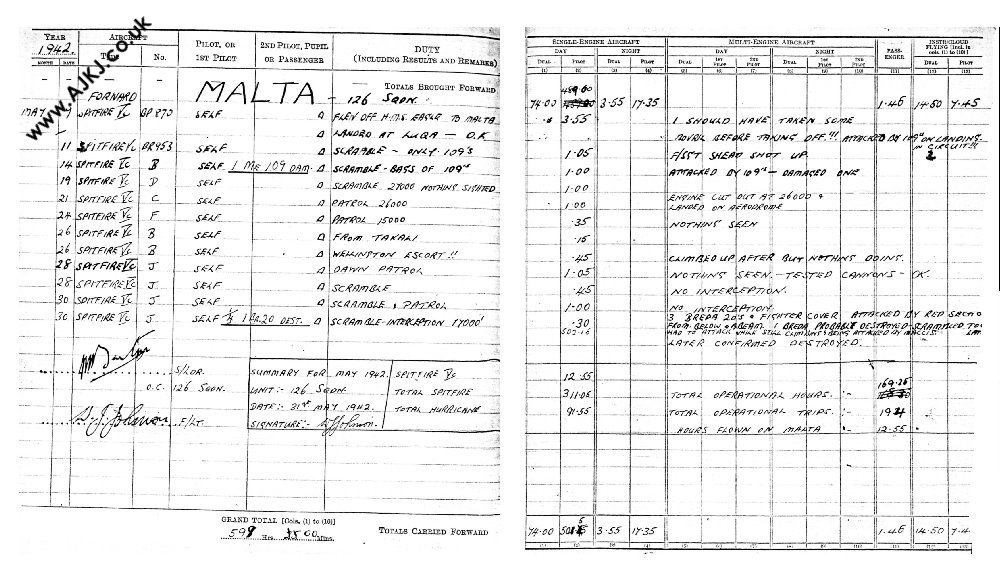 www.AJKJ.co.uk
YEAR AIRCRAFT PILOT, OR 1ST PILOT 2ND PILOT, PUPIL OR PASSENGER DUTY (INCLUDING RESULTS AND REMARKS)
1942. No.
MONTH DATE
— — — — TOTALS BROUGHT FORWARD
FORWARD MALTA — 126 SQDN.
MAY SPITFIRE Vc BP 870 SELF FLEW OFF H.M.S. EAGLE TO MALTA
LANDED AT LUQA — O.K
11 SPITFIRE Vc BR953 SELF SCRAMBLE - ONLY 109'S
14 SPITFIRE Vc B SELF 1 ME 109 DAM. SCRAMBLE - BAGS OF 109s
19 SPITFIRE Vc D SELF SCRAMBLE 27000 NOTHING SIGHTED
21 SPITFIRE Vc C SELF PATROL 26000
24 SPITFIRE Vc F SELF PATROL 15000
26 SPITFIRE Vc B SELF FROM TAKALI
26 SPITFIRE Vc B SELF WELLINGTON ESCORT!!
28 SPITFIRE Vc J SELF DAWN PATROL
28 SPITFIRE Vc J. SELF SCRAMBLE
30 SPITFIRE Vc J SELF SCRAMBLE & PATROL
30 SPITFIRE Vc J. SELF ½ 1 BR.20 DEST. SCRAMBLE-INTERCEPTION 17000'
S/LDR.
O.C. 126 SQDN.
A.J. Johnson F/LT.
SUMMARY FOR MAY 1942. SPITFIRE Vc
UNIT:- 126 SQDN. TOTAL SPITFIRE
DATE:- 31ST MAY 1942. TOTAL HURRICANE
SIGNATURE:- AJJohnson.
GRAND TOTAL [Cols. (1) to (10)]
Hrs. 00 Mins.
TOTALS CARRIED FORWARD
SINGLE-ENGINE AIRCRAFT MULTI-ENGINE AIRCRAFT PASSENGER INSTR/CLOUD FLYING [Incl. in cols. (1) to (10)]
DAY NIGHT DAY NIGHT
DUAL PILOT DUAL PILOT DUAL 1ST PILOT 2ND PILOT DUAL 1ST PILOT 2ND PILOT DUAL PILOT
(1) (2) (3) (4) (5) (6) (7) (8) (9) (10) (11) (12) (13)
74.00 3.55 17.35 1.45 14.50 7.45
3.55 I SHOULD HAVE TAKEN SOME
BOVRIL BEFORE TAKING OFF.!!! ATTACKED BY 109s ON LANDING. IN CIRCUIT!!!
1.05 SHEAD SHOT UP.
1.00 ATTACKED BY 109s — DAMAGED ONE
1.00
1.00 ENGINE CUT OUT AT 26000 & LANDED ON AERODROME
.35 NOTHING SEEN
.15
.45 CLIMBED UP AFTER BUT NOTHING DOING.
1.05 NOTHING SEEN. - TESTED CANNONS - OK.
.45 NO INTERCEPTION.
1.00 NO INTERCEPTION.
.30 3 BREDA 20's & FIGHTER COVER ATTACKED BY RED SECTIO
FROM BELOW & ABEAM. 1 BREDA PROBABLY DESTROYED - SCRAMBLED TOO
HAD TO ATTACK WHILE STILL CLIMBING & BEING ATTACKED BY MACCIS.
LATER CONFIRMED DESTROYED.
12.55
311.05 TOTAL OPERATIONAL HOURS. :- 169.25
91.55 TOTAL OPERATIONAL TRIPS. :-
HOURS FLOWN ON MALTA :- 12.55
74.00 3.55 17.35 1.45 14.50 7.4
(1) (2) (3) (4) (5) (6) (7) (8) (9) (10) (11) (12) (13)